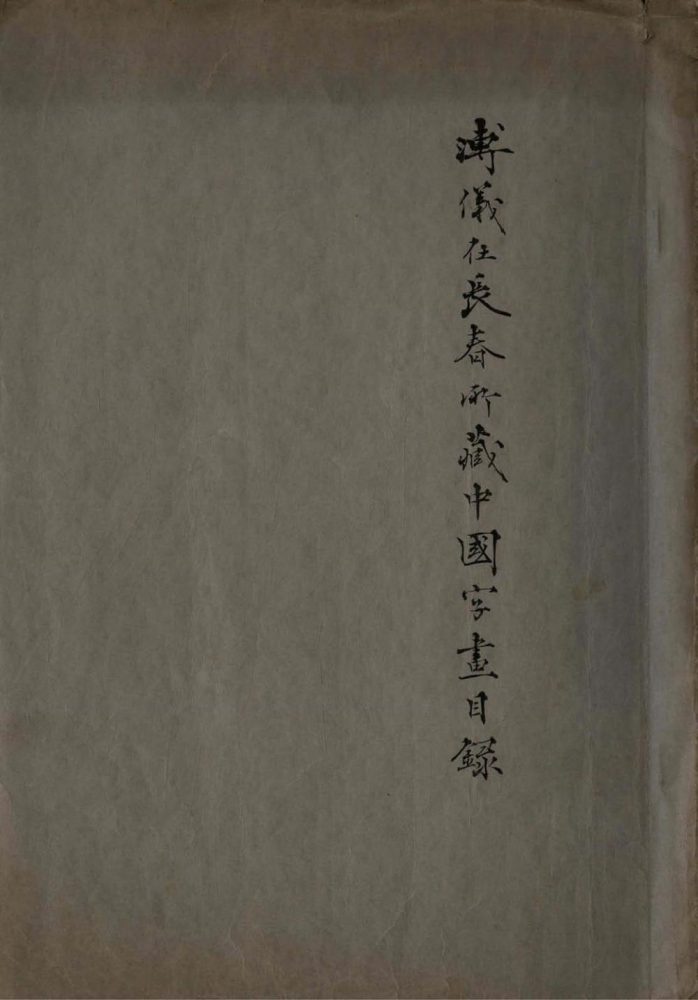 溥儀在長春所藏中國字畫目錄